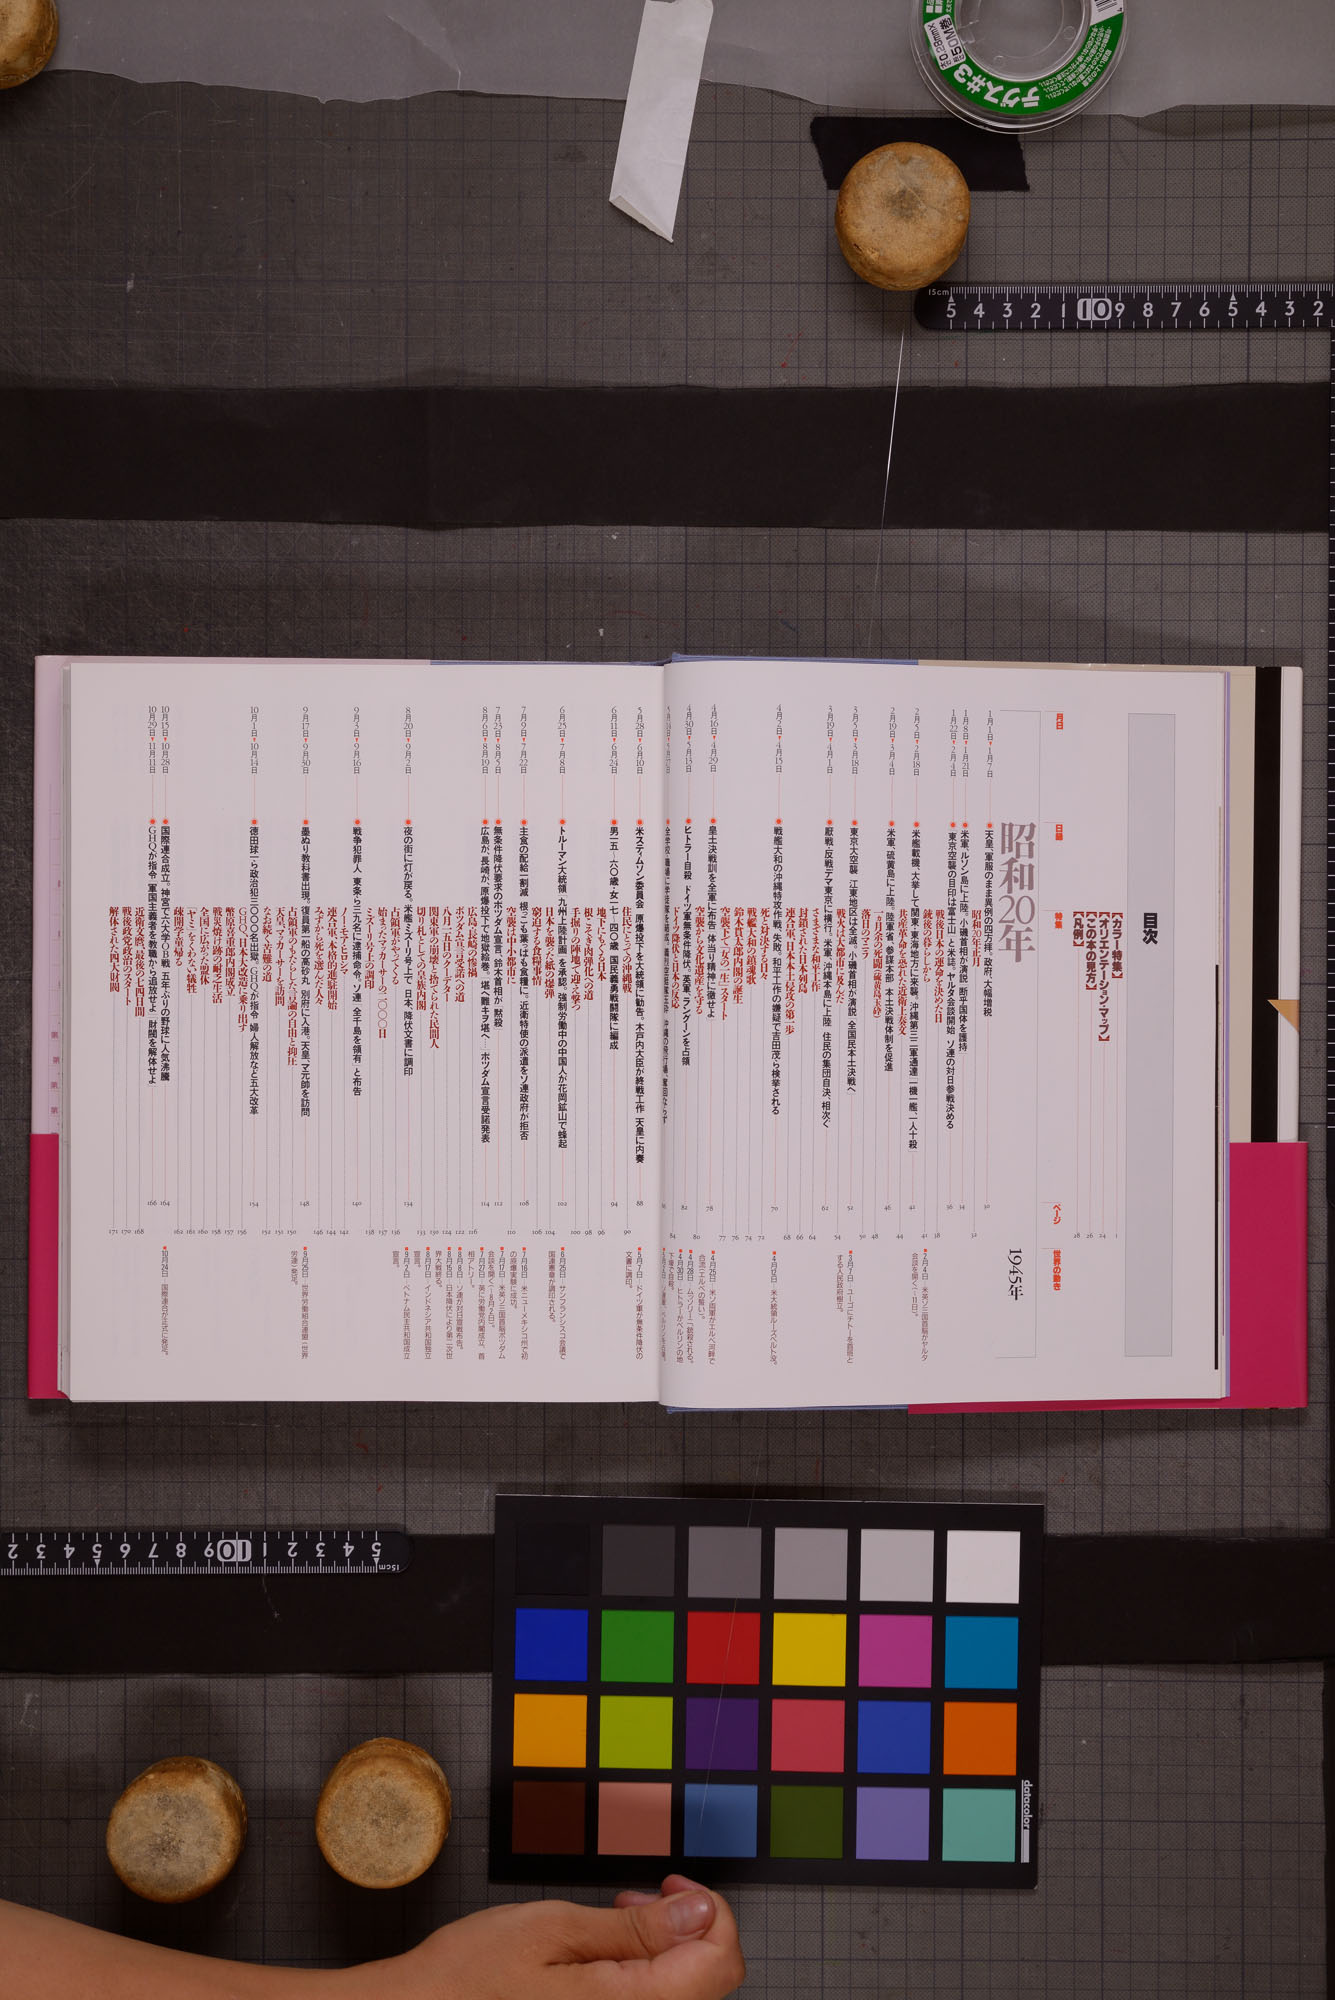 目次
【カラー特集】
【オリエンテーションマップ】
【この本の見方】
【凡例】
1
24
26
28
月日
日録
特集
ページ
世界の動き
昭和20年
1945年
1月1日▼1月7日
天皇、軍服のまま異例の四方拝。政府、大幅増税
30
昭和20年正月
32
1月8日▼1月21日
米軍、ルソン島に上陸。小磯首相が演説「断乎国体を護持」
34
戦後日本の運命を決めた日
1月22日▼2月4日
東京空襲の目印は富士山」と米誌。ヤルタ会談開始 ソ連の対日参戦決める
36
銃後の暮らしから
38
2月5日▼2月18日
米艦載機、大挙して関東・東海地方に来襲。沖縄第三二軍通達「一機一艦、一人十殺」
共産革命を恐れた近衛上奏文
2月4日 米英ソ三国首脳がヤルタ
会談を開く(―11日)。
2月19日▼3月4日
米軍、硫黄島に上陸。陸軍省、参謀本部 本土決戦体制を促進
44
46
落日のマニラ
48
3月5日▼3月18日
東京大空襲 江東地区は全滅。小磯首相が演説「全国民本土決戦へ」
52
戦火は大都市に及んだ
3月7日 ユーゴにチトーを首班と
する人民政府樹立。
3月19日▼4月1日
厭戦・反戦デマ東京に横行。米軍、沖縄本島に上陸 住民の集団自決、相次ぐ
さまざまな和平工作
64
封鎖された日本列島
66
連合軍、日本本土侵攻の第一歩
68
4月2日▼4月15日
戦艦大和の沖縄特攻作戦、失敗。和平工作の嫌疑で吉田茂ら検挙される
70
死と対決する日々
72
戦艦大和の鎮魂歌
74
鈴木貫太郎内閣の誕生
76
空襲下で「女の一生」スタート
77
4月12日 米大統領ルーズベルト没。
4月16日▼4月29日
皇土決戦訓を全軍に布告「体当り精神に徹せよ」
78
空襲から文化遺産を守る
80
4月25日 米ソ両軍がエルベ河畔で
合流(エルベの誓い)。
4月28日 ムッソリーニ銃殺される。
4月30日 ヒトラーがベルリンの地
下壕で自殺。
4月30日▼5月13日
ヒトラー自殺 ドイツ軍無条件降伏。英軍、ラングーンを占領
82
ドイツの降伏と日本の反応
84
5月28日▼6月10日
米スティムソン委員会 原爆投下を大統領に勧告。木戸内大臣が終戦工作 天皇に内奏
88
住民にとっての沖縄戦
90
5月7日 ドイツ軍が無条件降伏の
文書に調印。
6月11日▼6月24日
男一五―六〇歳・女一七―四〇歳 国民義勇戦闘隊に編成
94
地下にもぐる日本
96
根こそぎ肉弾化への道
98
手掘りの陣地で迎え撃つ
100
6月25日▼7月8日
トルーマン大統領 九州上陸計画を承認。強制労働中の中国人が花岡鉱山で蜂起
102
日本を襲った紙の爆弾
104
窮迫する食糧事情
106
6月26日 サンフランシスコ会議で
国連憲章が調印される。
7月9日▼7月22日
主食の配給一割減 根っこも葉っぱも食糧に。近衛特使の派遣をソ連政府が拒否
108
空襲は中小都市に
110
7月16日 米ニューメキシコ州で初
の原爆実験に成功。
7月17日 米英ソ三国首脳ポツダム
会談を開く(―8月2日)。
7月23日▼8月5日
無条件降伏要求のポツダム宣言、鈴木首相が「黙殺」
112
7月27日 英に労働党内閣成立、首
相アトリー。
8月6日▼8月19日
広島が、長崎が、原爆投下で地獄絵巻。「堪へ難キヲ堪ヘ」―ポツダム宣言受諾発表
114
広島・長崎の惨禍
116
ポツダム宣言受諾への道
122
八月十五日のクーデター
124
関東軍の崩壊と捨てられた民間人
130
切り札としての皇族内閣
133
8月8日 ソ連が対日宣戦布告。
8月15日 日本降伏により第二次世
界大戦終る。
8月17日 インドネシア共和国独立
宣言。
8月20日▼9月2日
夜の街に灯が戻る。米艦ミズーリ号上で「日本」降伏文書に調印
134
占領軍がやってくる
136
始まったマッカーサーの二〇〇〇日
137
ミズーリ号上の調印
138
9月2日 ベトナム民主共和国成立
宣言。
9月3日▼9月16日
戦争犯罪人 東条ら三九名に逮捕命令。ソ連「全千島を領有」と布告
140
ノーモアヒロシマ
142
連合軍、本格的進駐開始
144
みずから死を選んだ人々
146
9月17日▼9月30日
墨ぬり教科書出現。復員第一船の高砂丸 別府に入港。天皇、マ元帥を訪問
148
占領軍のもたらした言論の自由と抑圧
150
天皇、マッカーサーを訪問
151
なお続く苦難の道
152
9月25日 世界労働組合連盟(世界
労連)発足。
10月1日▼10月14日
徳田球一ら政治犯三〇〇〇名出獄。GHQが指令 婦人解放など五大改革
154
GHQ、日本大改造に乗り出す
156
幣原喜重郎内閣成立
157
戦災焼け跡の耐乏生活
158
全国に広がった盟休
160
「ヤミ」をくわない犠牲
161
疎開学童帰る
162
10月15日▼10月28日
国際連合成立。神宮で六大学OB戦 五年ぶりの野球に人気沸騰
164
10月24日 国際連合が正式に発足。
10月29日▼11月11日
GHQが指令「軍国主義者を教職から追放せよ」「財閥を解体せよ」
166
近衛文麿、最後の七四日間
168
戦後政党政治のスタート
170
解体された四大財閥
171
テグス#3
50M巻
太さ0.28mm×
15cm
5 4 3 2 1 10 9 8 7 6 5 4 3 2
15cm
5 4 3 2 1 10 9 8 7 6 5 4 3 2
datacolor